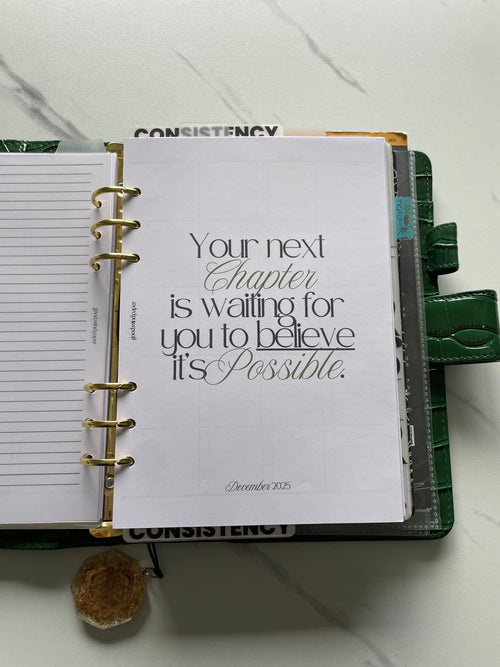 CONSISTENCY
Your next
Chapter
is waiting for
you to believe
it's Possible.
December 2025
CONSISTENCY